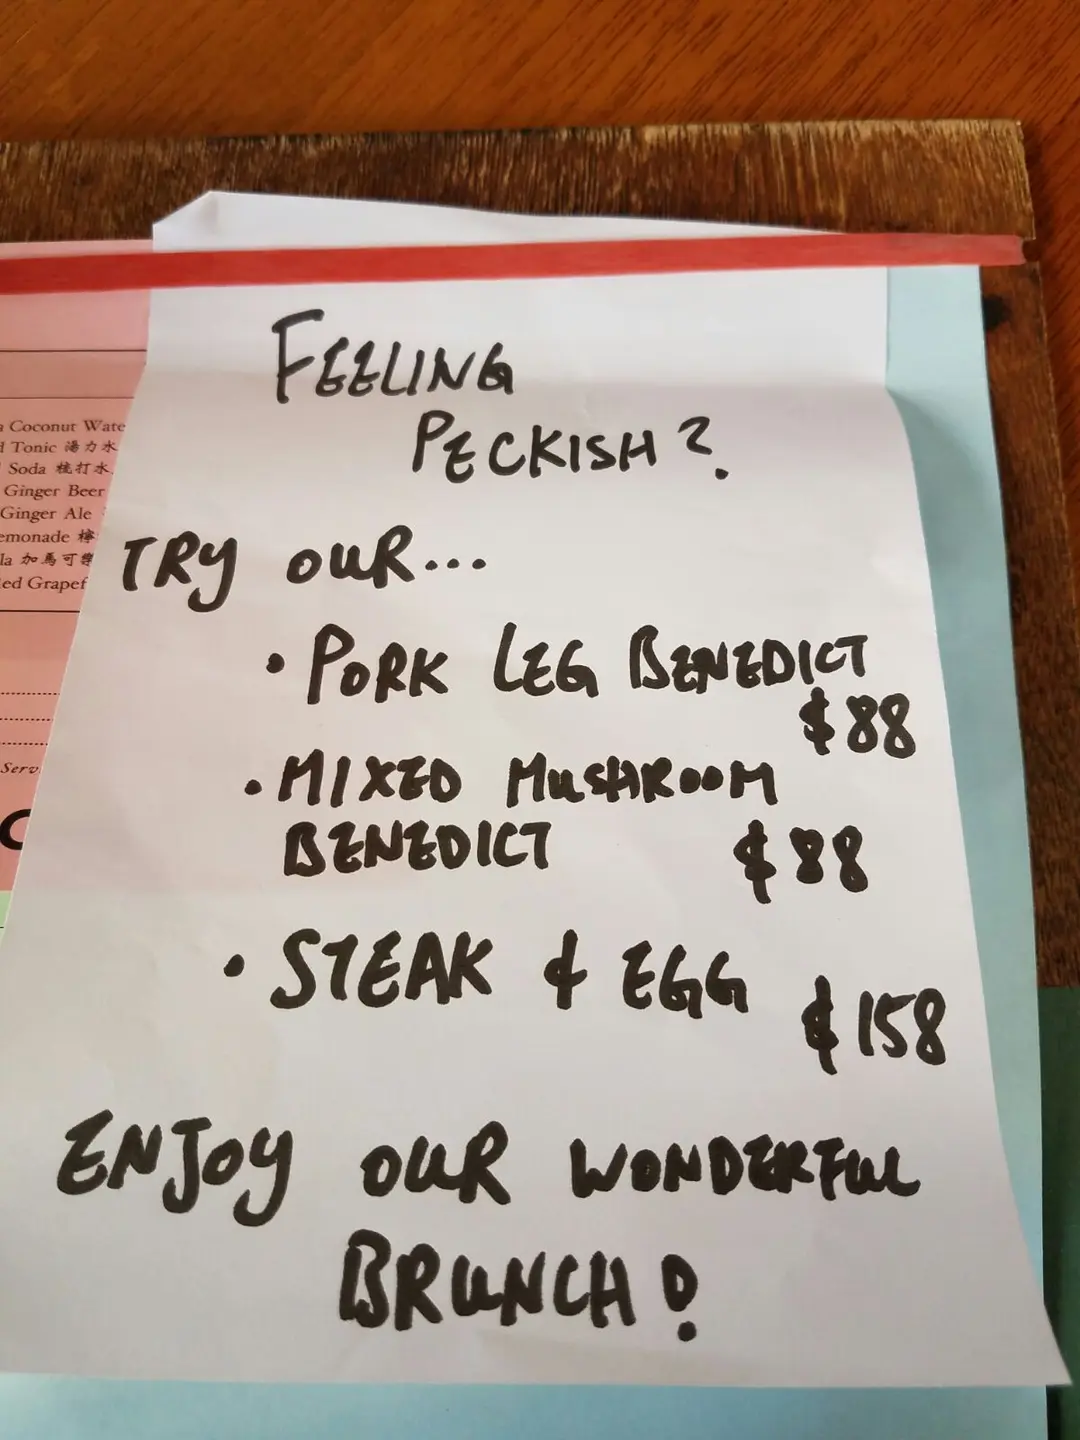 a Coconut Wate
d Tonic 湯力水
Soda 桃打水
Ginger Beer
Ginger Ale
emonade 檸
la 加馬可樂
ed Grapef
Serv
FEELING
PECKISH?
TRY OUR...
• PORK LEG BENEDICT
$88
• MIXED MUSHROOM
BENEDICT $88
• STEAK & EGG $158
ENJOY OUR WONDERFUL
BRUNCH!